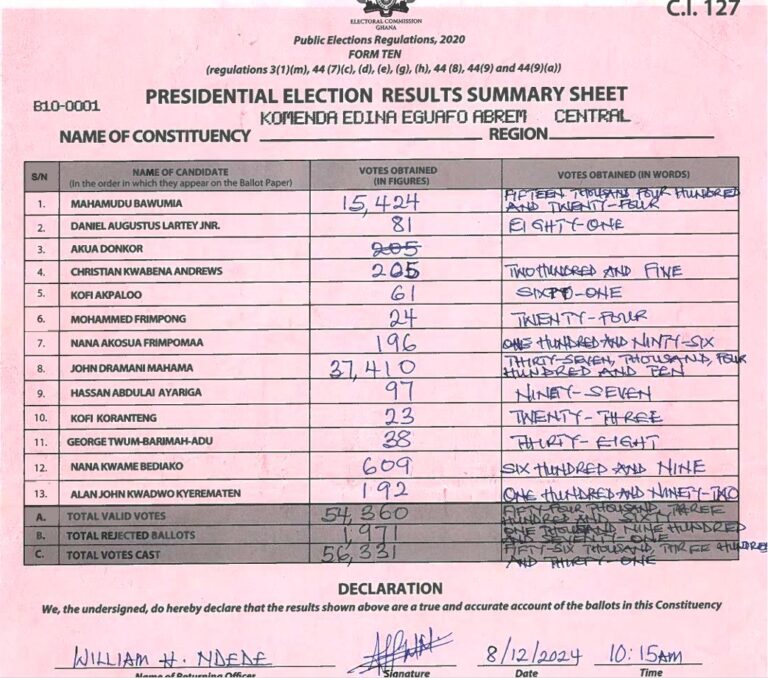 C.I. 127
ELECTORAL COMMISSION
GHANA
Public Elections Regulations, 2020
FORM TEN
(regulations 3(1)(m), 44 (7)(c), (d), (e), (g), (h), 44 (8), 44(9) and 44(9)(a))
PRESIDENTIAL ELECTION RESULTS SUMMARY SHEET
B10-0001
KOMENDA EDINA EGUAFO ABREM CENTRAL
NAME OF CONSTITUENCY REGION
S/N NAME OF CANDIDATE (In the order in which they appear on the Ballot Paper) VOTES OBTAINED (IN FIGURES) VOTES OBTAINED (IN WORDS)
1. MAHAMUDU BAWUMIA 15,424 FIFTEEN THOUSAND FOUR HUNDRED AND TWENTY-FOUR
2. DANIEL AUGUSTUS LARTEY JNR. 81 EIGHTY-ONE
3. AKUA DONKOR 205
4. CHRISTIAN KWABENA ANDREWS 205 TWO HUNDRED AND FIVE
5. KOFI AKPALOO 61 SIXTY-ONE
6. MOHAMMED FRIMPONG 24 TWENTY-FOUR
7. NANA AKOSUA FRIMPOMAA 196 ONE HUNDRED AND NINTY-SIX
8. JOHN DRAMANI MAHAMA 37,410 THIRTY-SEVEN, THOUSAND, FOUR HUNDRED AND TEN
9. HASSAN ABDULAI AYARIGA 97 NINETY-SEVEN
10. KOFI KORANTENG 23 TWENTY-THREE
11. GEORGE TWUM-BARIMAH-ADU 38 THIRTY-EIGHT
12. NANA KWAME BEDIAKO 609 SIX HUNDRED AND NINE
13. ALAN JOHN KWADWO KYEREMATEN 192 ONE HUNDRED AND NINETY-TWO
A. TOTAL VALID VOTES 54,360 FIFTY-FOUR THOUSAND, THREE HUNDRED AND SIXTY
B. TOTAL REJECTED BALLOTS 1,971 ONE THOUSAND, NINE HUNDRED AND SEVENTY-ONE
C. TOTAL VOTES CAST 56,331 FIFTY-SIX THOUSAND, THREE HUNDRED AND THIRTY-ONE
DECLARATION
We, the undersigned, do hereby declare that the results shown above are a true and accurate account of the ballots in this Constituency
WILLIAM H. NDEDE 8/12/2024 10:15AM
Name of Returning Officer Signature Date Time